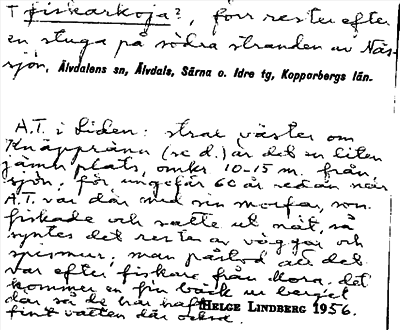 † fiskarkoja?, förr rester efter
en stuga på södra stranden av Näs-
sjön, Älvdalens sn, Älvdals, Särna o. Idre tg, Kopparbergs län.
A.T. i Liden: strax väster om
Knäppråna (se d.) är det en liten
jämn plats, omkr. 10-15 m. från
sjön; för ungefär 60 år sedan när
A.T. var där med sin morfar, som
fiskade och satte ut nät, så
syntes det rester av väggar och
spismur; man påstod att det
var efter fiskare från Mora. det
kommer en fin bäck ur berget
där så de har haft HELGE LINDBERG 1956.
fint vatten där också.